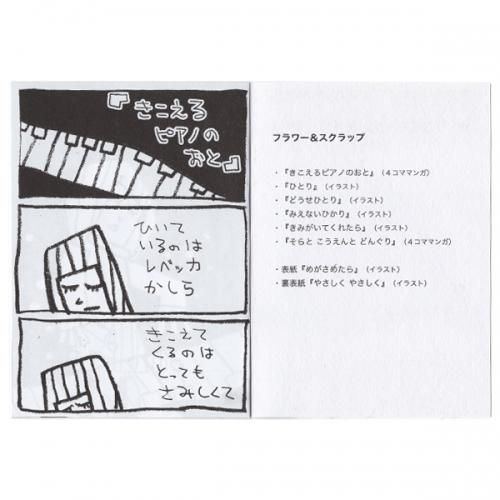 『きこえる
ピアノの
おと』
ひいて
いるのは
レベッカ
かしら
きこえて
くるのは
とっても
さみしくて
フラワー＆スクラップ
・『きこえるピアノのおと』（４コママンガ）
・『ひとり』（イラスト）
・『どうせひとり』（イラスト）
・『みえないひかり』（イラスト）
・『きみがいてくれたら』（イラスト）
・『そらと こうえんと どんぐり』（４コママンガ）
・表紙『めがさめたら』（イラスト）
・裏表紙『やさしく やさしく』（イラスト）